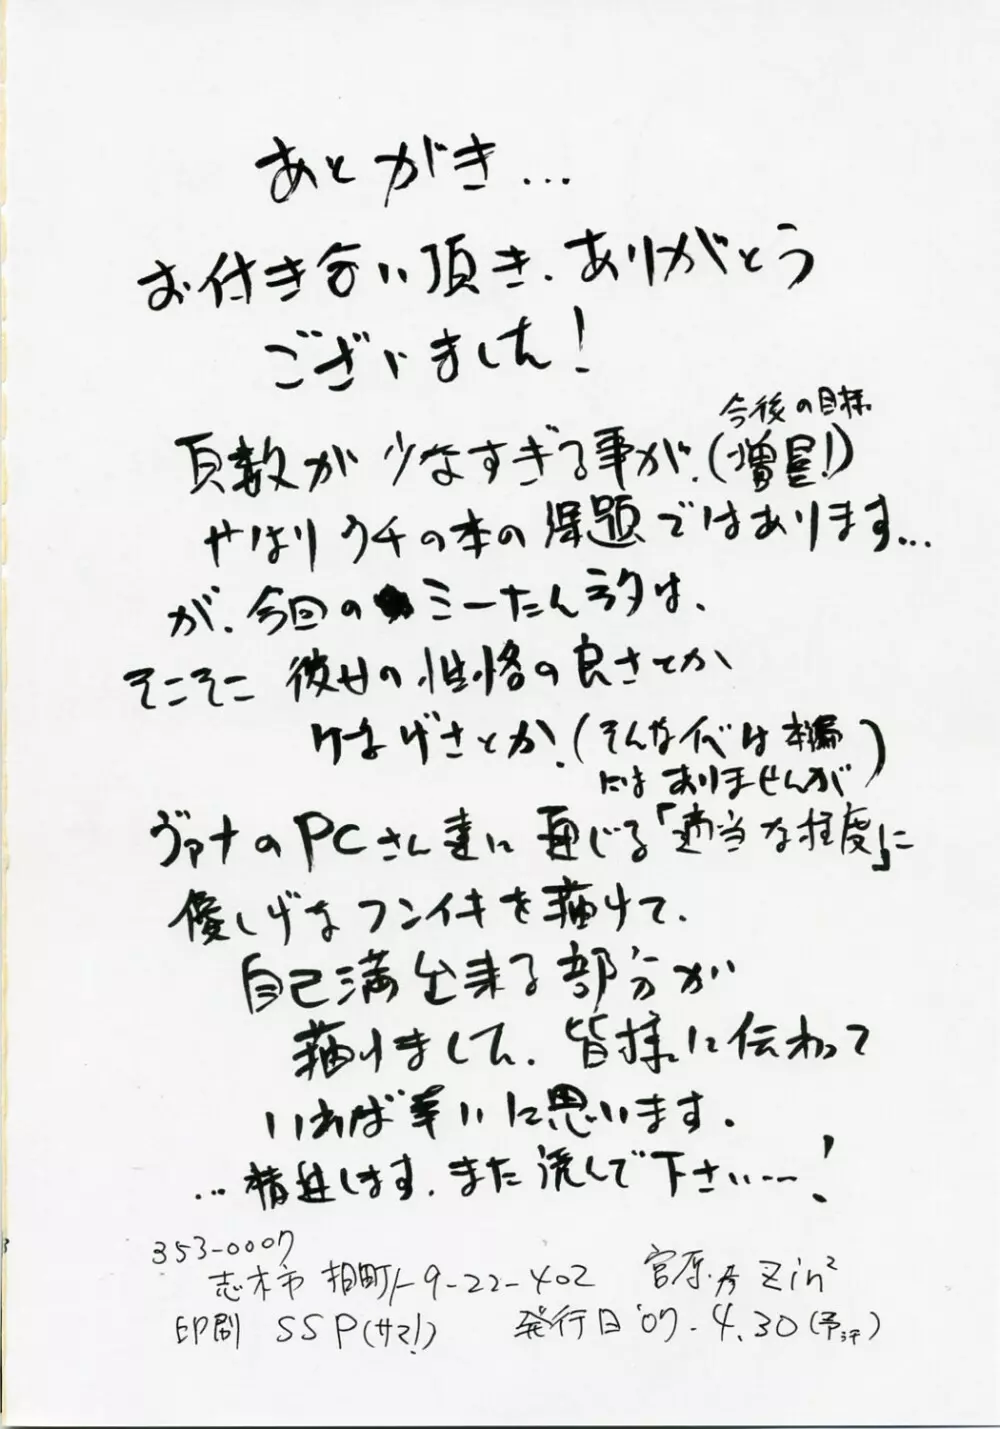 あとがき…
お付き合い頂き、ありがとう
ございました!
今後の目標
頁数が少なすぎる事が、(増量!)
やはりウチの本の課題ではあります…
が、今回のミーたんネタは、
そこそこ彼女の性格の良さとか
けなげさとか、(そんなイベは本編
にはありませんが)
ヴァナのPCさん達に通じる「適当な程度」に
優しげなフンイキを描けて、
自己満出来る部分が
描けました、皆様に伝わって
いれば幸いに思います。
…精進します、また読んで下さい…!
353-0007
志木市 柏町1-9-22-402
宮原 歩 Zin²
印刷 SSP(サマ!)
発行日 '07.4.30(予定)